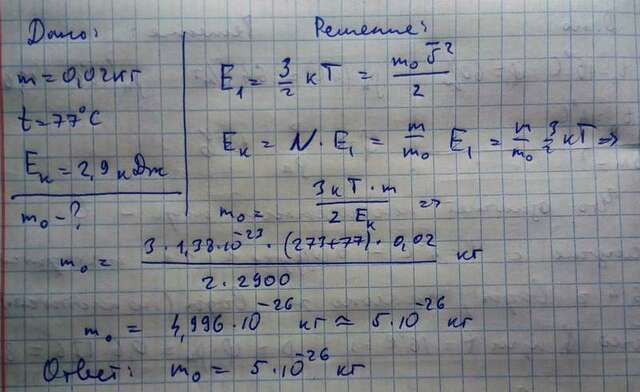 Дано:
m = 0,02 кг
t = 77°C
Eк = 2,9 кДж
m₀ - ?
Решение:
E₁ = 3/2 кТ = m₀ v̄²/2
Eк = N · E₁ = m/m₀ E₁ = m/m₀ 3/2 кТ =>
m₀ = 3кТ · m / 2 Eк =>
m₀ = 3 · 1,38 · 10⁻²³ · (273+77) · 0,02 / 2 · 2900 кг
m₀ = 4,996 · 10⁻²⁶ кг ≈ 5 · 10⁻²⁶ кг
Ответ: m₀ = 5 · 10⁻²⁶ кг